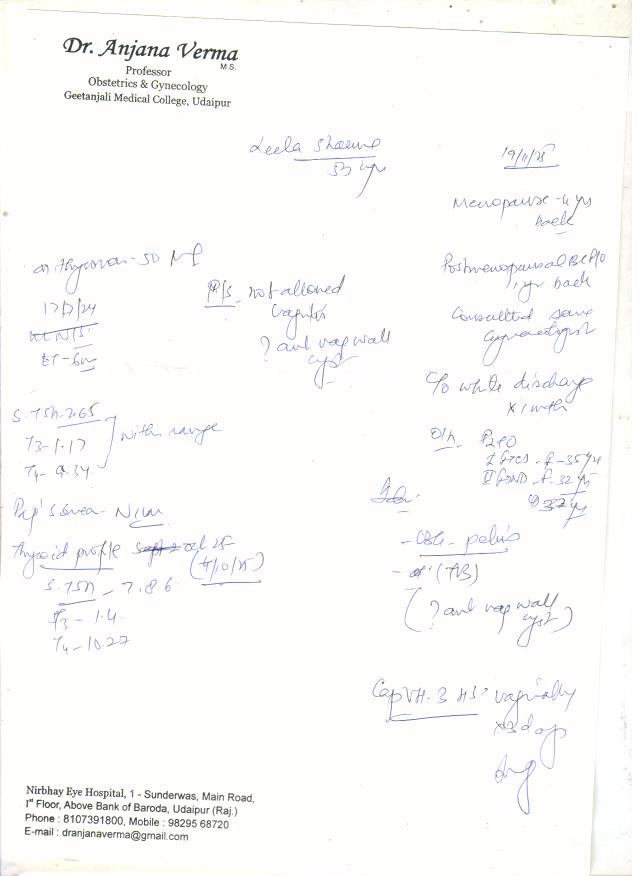 Dr. Anjana Verma
M.S.
Professor
Obstetrics & Gynecology
Geetanjali Medical College, Udaipur
Leela Sharma
53 yrs
19/11/25
Menopause - 4 yrs
back
Postmenopausal
1 yr back
Consulted some
Gynaecologist
C/o white discharge
x 1 mth
O/H. P2 0
I - F - 35 yr
II FTND - F - 32 yrs
- USG - pelvis
(? ant vag wall
cyst)
Cap VH-3 HS vaginally
x 3 days
on thyronorm - 50
17/7/24
ET - 6m
P/S not allowed
? ant vag wall
cyst
S.TSH - 2.65
T3 - 1.17
T4 - 9.34
within range
Pap's smear - NILM
Thyroid profile
S.TSH - 7.86
T3 - 1.4
T4 - 10.27
Nirbhay Eye Hospital, 1 - Sunderwas, Main Road,
1st Floor, Above Bank of Baroda, Udaipur (Raj.)
Phone : 8107391800, Mobile : 98295 68720
E-mail : dranjanaverma@gmail.com